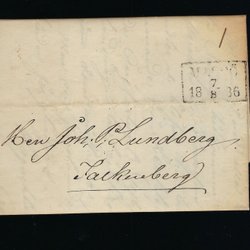 1
7
18 8 36
Herr Joh. P. Lundberg.
Falkenberg